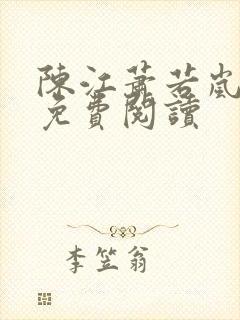 陳江蕭若嵐
免費閱讀
李笠翁